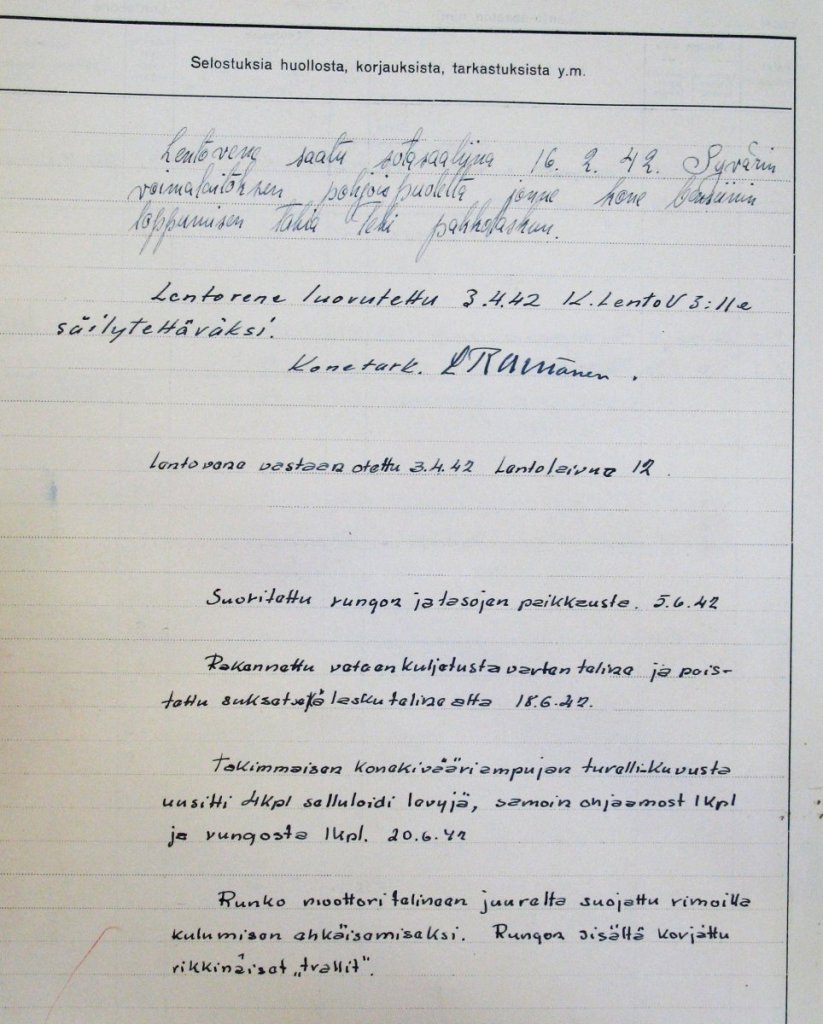 Selostuksia huollosta, korjauksista, tarkastuksista y.m.
Lentovene saatu sotasaaliina 16. 2. 42. Syvärin
voimalaitoksen pohjoispuolelta jonne kone bensiinin
loppumisen takia teki pakkolaskun.
Lentovene luovutettu 3.4.42 K.LentoV 3:lle
säilytettäväksi.
Konetark.
Lentovene vastaan otettu 3.4.42 Lentolaivue 12.
Suoritettu rungon ja tasojen paikkausta. 5.6.42
Rakennettu veteen kuljetusta varten teline ja pois-
tettu sukset sekä laskutelineeltä 18.6.42.
Takimmaisen konekivääriampujan turelli-kuvusta
uusitti 4kpl selluloidi levyjä, samoin ohjaamost 1kpl
ja rungosta 1kpl. 20.6.42
Runko moottori telineen juurelta suojattu rimoilla
kulumisen ehkäisemiseksi. Rungon sisältä korjattu
rikkinäiset „trallit".